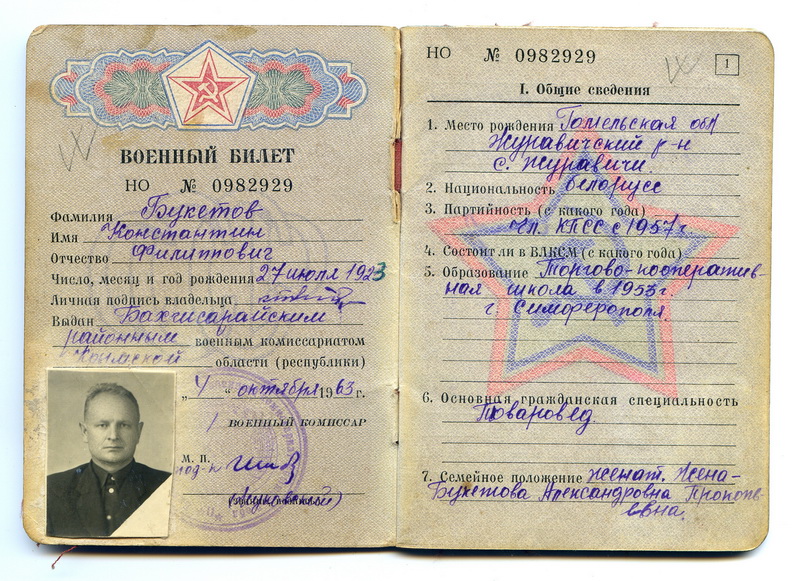 ВОЕННЫЙ БИЛЕТ
НО № 0982929
Фамилия Букетов
Имя Константин
Отчество Филиппович
Число, месяц и год рождения 27 июля 1923
Личная подпись владельца
Выдан Бахчисарайским
районным военным комиссариатом
Крымской области (республики)
„4“ октября 1963 г.
ВОЕННЫЙ КОМИССАР
М. П.
под-к
НО № 0982929
1
I. Общие сведения
1. Место рождения Гомельская обл
Журавичский р-н
с. Журавичи
2. Национальность белорусс
3. Партийность (с какого года)
Чл. КПСС с 1957 г.
4. Состоит ли в ВЛКСМ (с какого года)
5. Образование Торгово-кооператив-
ная школа в 1953 г.
г Симферополя.
6. Основная гражданская специальность
Товаровед.
7. Семейное положение женат. Жена-
Букетова Александровна